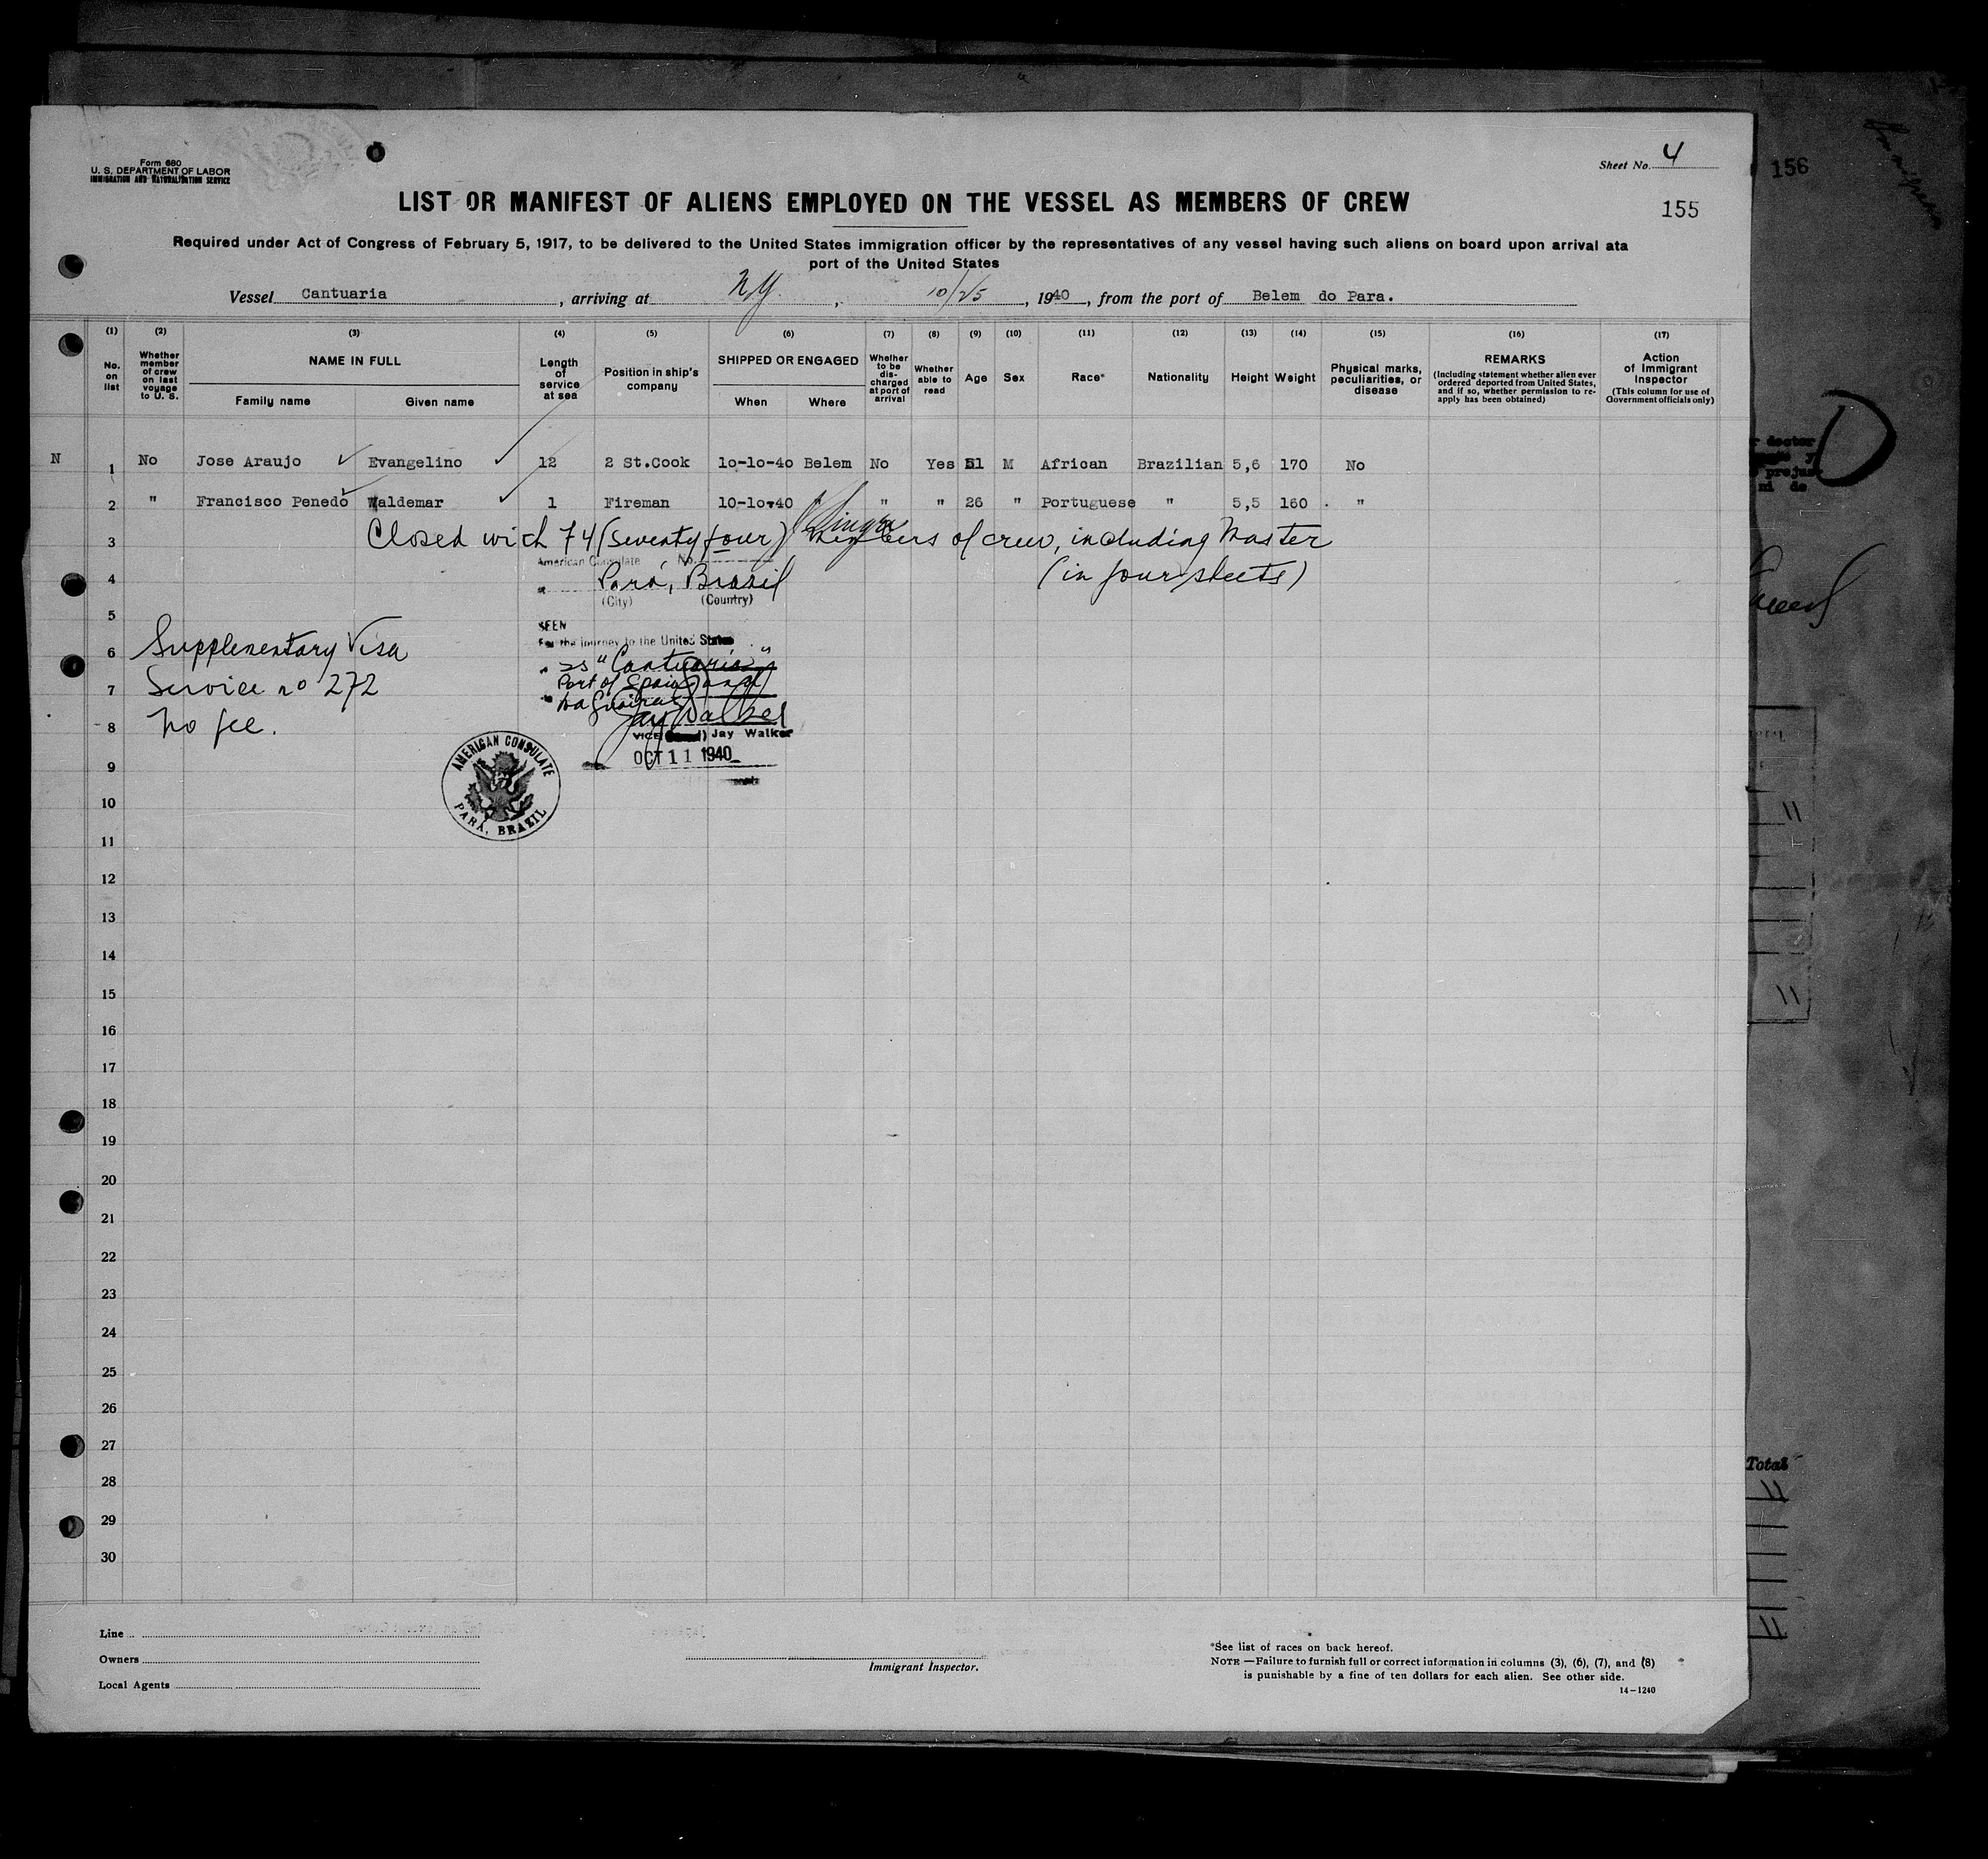 Form 680
U. S. DEPARTMENT OF LABOR
IMMIGRATION AND NATURALIZATION SERVICE
Sheet No. 4
156
155
LIST OR MANIFEST OF ALIENS EMPLOYED ON THE VESSEL AS MEMBERS OF CREW
Required under Act of Congress of February 5, 1917, to be delivered to the United States immigration officer by the representatives of any vessel having such aliens on board upon arrival ata
port of the United States
Vessel Cantuaria, arriving at N.Y., 10/25, 1940, from the port of Belem do Para.
(1) (2) (3) (4) (5) (6) (7) (8) (9) (10) (11) (12) (13) (14) (15) (16) (17)
No. on list
Whether member of crew on last voyage to U. S.
NAME IN FULL
Family name
Given name
Length of service at sea
Position in ship's company
SHIPPED OR ENGAGED
When
Where
Whether to be discharged at port of arrival
Whether able to read
Age
Sex
Race*
Nationality
Height
Weight
Physical marks, peculiarities, or disease
REMARKS
(Including statement whether alien ever ordered deported from United States, and if so, whether permission to reapply has been obtained)
Action of Immigrant Inspector
(This column for use of Government officials only)
N 1 No Jose Araujo Evangelino 12 2 St.Cook 10-10-40 Belem No Yes 51 M African Brazilian 5,6 170 No
2 " Francisco Penedo Waldemar 1 Fireman 10-10-40 " " " 26 " Portuguese " 5,5 160 "
3 Closed with 74 (seventy four) members of crew, including Master
American Consulate No.
4 Pará, Brazil (in four sheets)
(City) (Country)
5
SEEN
For the journey to the United States
6 Supplementary Visa
ss "Cantuaria"
Port of Spain and
7 Service nº 272
La Guaira
8 No fee.
Jay Walker
VICE Jay Walker
OCT 11 1940
AMERICAN CONSULATE
PARÁ, BRAZIL
9
10
11
12
13
14
15
16
17
18
19
20
21
22
23
24
25
26
27
28
29
30
Line
Owners
Local Agents
Immigrant Inspector.
*See list of races on back hereof.
NOTE—Failure to furnish full or correct information in columns (3), (6), (7), and (8)
is punishable by a fine of ten dollars for each alien. See other side.
14-1240
D
Total